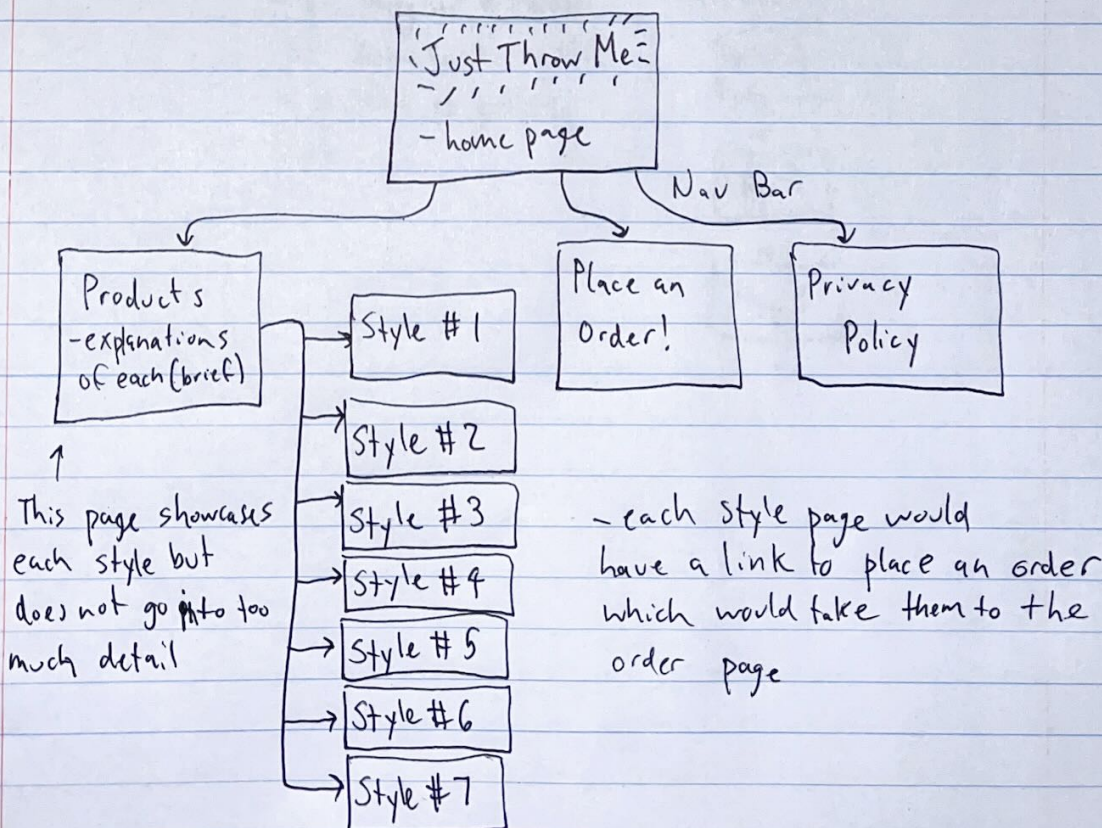 Just Throw Me
- home page
Nav Bar
Products
- explanations
of each (brief)
Style # 1
Style # 2
Style # 3
Style # 4
Style # 5
Style # 6
Style # 7
Place an
Order!
Privacy
Policy
This page showcases
each style but
does not go into too
much detail
- each style page would
have a link to place an order
which would take them to the
order page